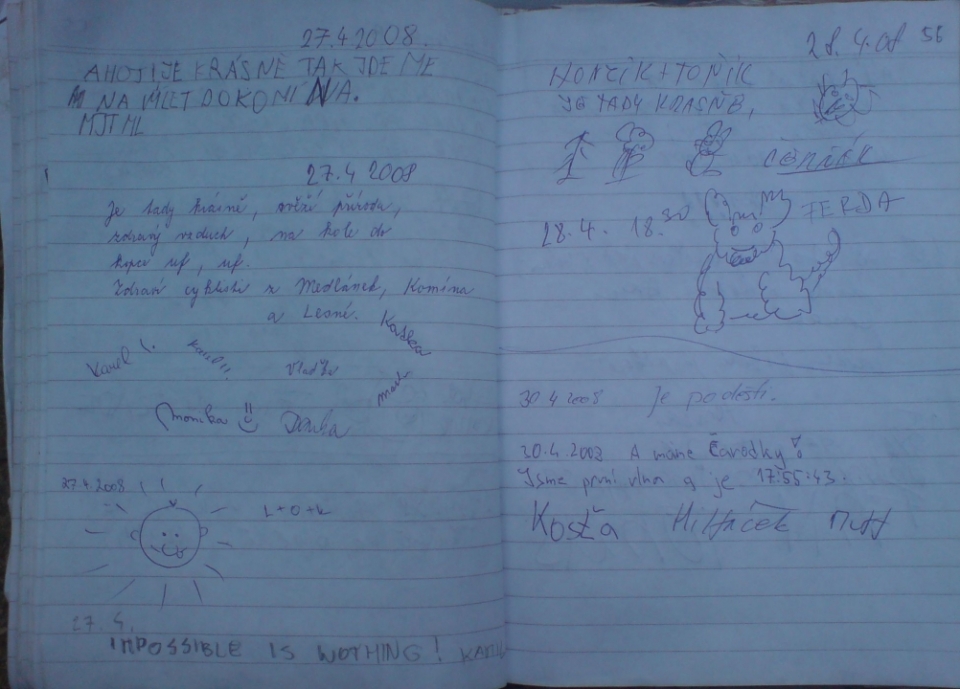 27.4 2008.
AHOJ! JE KRÁSNĚ TAK JDEME
NA VÝLET DO KOMÍNA.
27.4 2008
Je tady krásně, svěží příroda,
zdravý vzduch, na kole do
kopce uf, uf.
Zdraví cyklisté z Medlánek, Komína
a Lesné.
Kačka
Karel I.
Karel II.
Vlaďka
Monika
27.4.2008
L+O+K
27. 4.
IMPOSSIBLE IS NOTHING!
56
28.4.08
HONZÍK + TONÍK
JE TADY KRÁSNĚ,
28.4. 18.30
FERDA
30 4 2008 Je po dešti.
30.4.2008 A máme Čarodky!
Jsme první vlna a je 17:55:43.
Kosťa